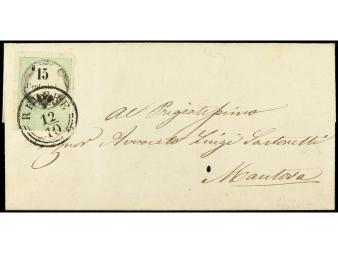 15
12
10
Al Pregiatissimo
Signor Avvocato Luigi Sartoretti
Mantova